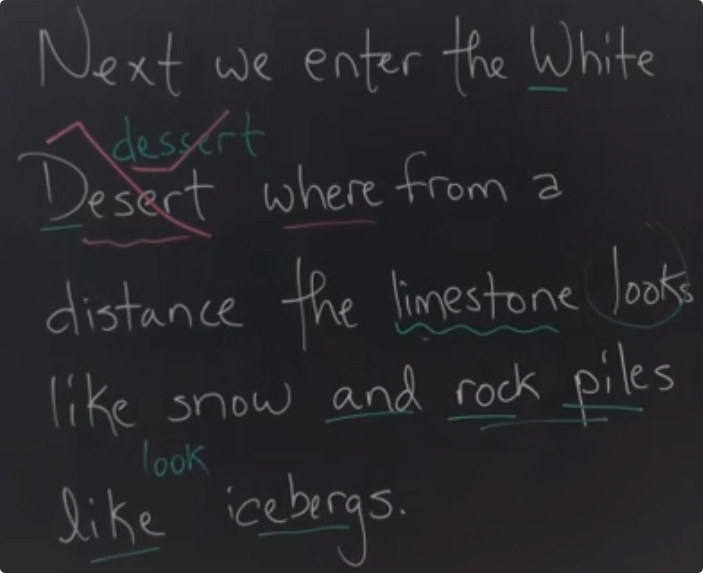 Next we enter the White
dessert
Desert where from a
distance the limestone looks
like snow and rock piles
look
like icebergs.